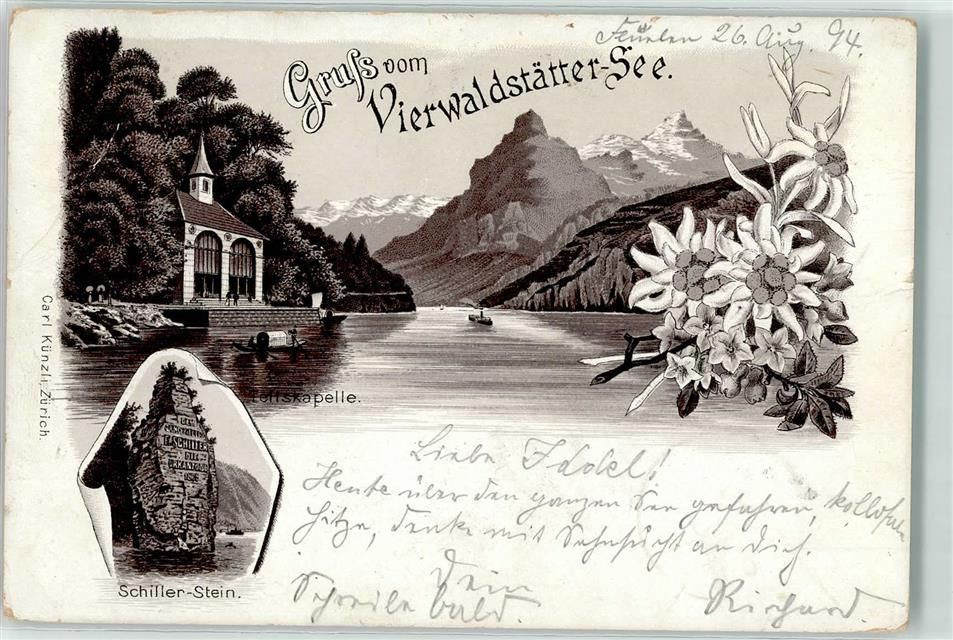 Flüelen 26. Aug. 94.
Gruss vom
Vierwaldstätter-See.
Carl Künzli, Zürich.
Tellskapelle.
DEM
F. SCHILLER
DIE
URKANTONE
Schiller-Stein.
Liebe Idchel!
Heute über den ganzen See gefahren, kollossale
Hitze, denke mit Sehnsucht an dich.
Dein
Schreibe bald. Richard